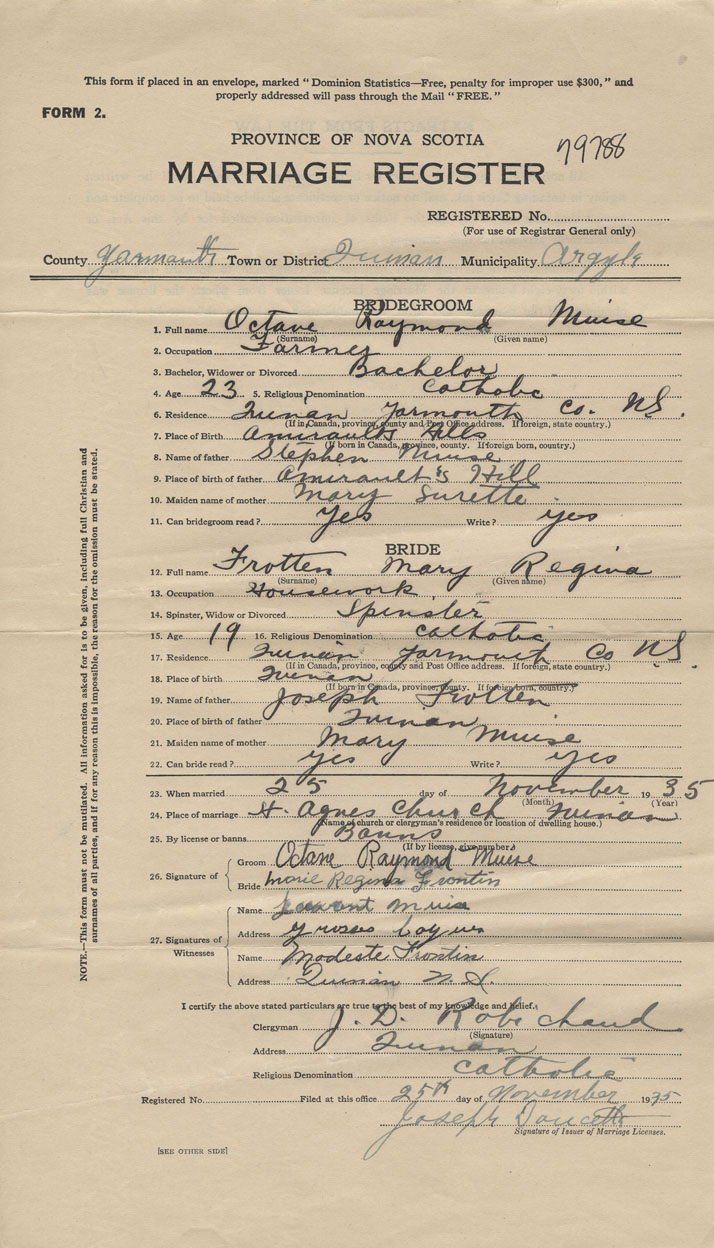 This form if placed in an envelope, marked "Dominion Statistics—Free, penalty for improper use $300," and
properly addressed will pass through the Mail "FREE."
FORM 2.
PROVINCE OF NOVA SCOTIA
79788
MARRIAGE REGISTER
REGISTERED No.
(For use of Registrar General only)
County Yarmouth Town or District Quinan Municipality Argyle
BRIDEGROOM
1. Full name Octave Raymond Muise
(Surname) (Given name)
2. Occupation Farmer
3. Bachelor, Widower or Divorced Bachelor
4. Age 23 5. Religious Denomination Catholic
6. Residence Quinan Yarmouth Co. N.S.
(If in Canada, province, county and Post Office address. If foreign, state country.)
7. Place of Birth Amiraults Hills
(If born in Canada, province, county. If foreign born, country.)
8. Name of father Stephen Muise
9. Place of birth of father Amirault's Hill
10. Maiden name of mother Mary Surette
11. Can bridegroom read? Yes Write? yes
BRIDE
12. Full name Frotten Mary Regina
(Surname) (Given name)
13. Occupation Housework
14. Spinster, Widow or Divorced Spinster
15. Age 19 16. Religious Denomination Catholic
17. Residence Quinan Yarmouth Co N.S.
(If in Canada, province, county and Post Office address. If foreign, state country.)
18. Place of birth Quinan
(If born in Canada, province, county. If foreign born, country.)
19. Name of father Joseph Frotten
20. Place of birth of father Quinan
21. Maiden name of mother Mary Muise
22. Can bride read? yes Write? yes
23. When married 25 day of November 1935
(Month) (Year)
24. Place of marriage St. Agnes Church Quinan
(Name of church or clergyman's residence or location of dwelling house.)
25. By license or banns Banns
(If by license, give number.)
26. Signature of
Groom Octave Raymond Muise
Bride Marie Regina Frontin
27. Signatures of Witnesses
Name Muise
Address
Name Modeste Frontin
Address Quinan N.S.
I certify the above stated particulars are true to the best of my knowledge and belief.
Clergyman J. D. Robichaud
(Signature)
Address Quinan
Religious Denomination Catholic
Registered No. Filed at this office 25th day of November 1935
Joseph Doucette
Signature of Issuer of Marriage Licenses.
[SEE OTHER SIDE]
NOTE.—This form must not be mutilated. All information asked for is to be given, including full Christian and
surnames of all parties, and if for any reason this is impossible, the reason for the omission must be stated.